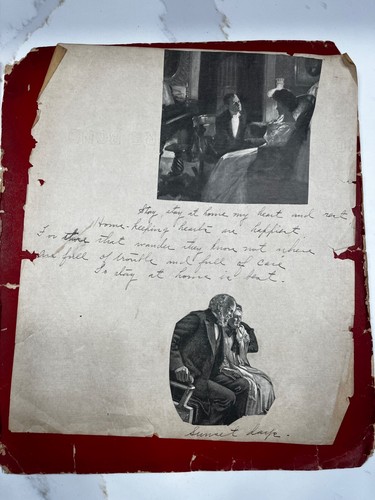 Stay, stay at home my heart and rest
Home-keeping hearts are happiest
For those that wander they know not where
are full of trouble and full of care
To stay at home is best.
Sunset days.